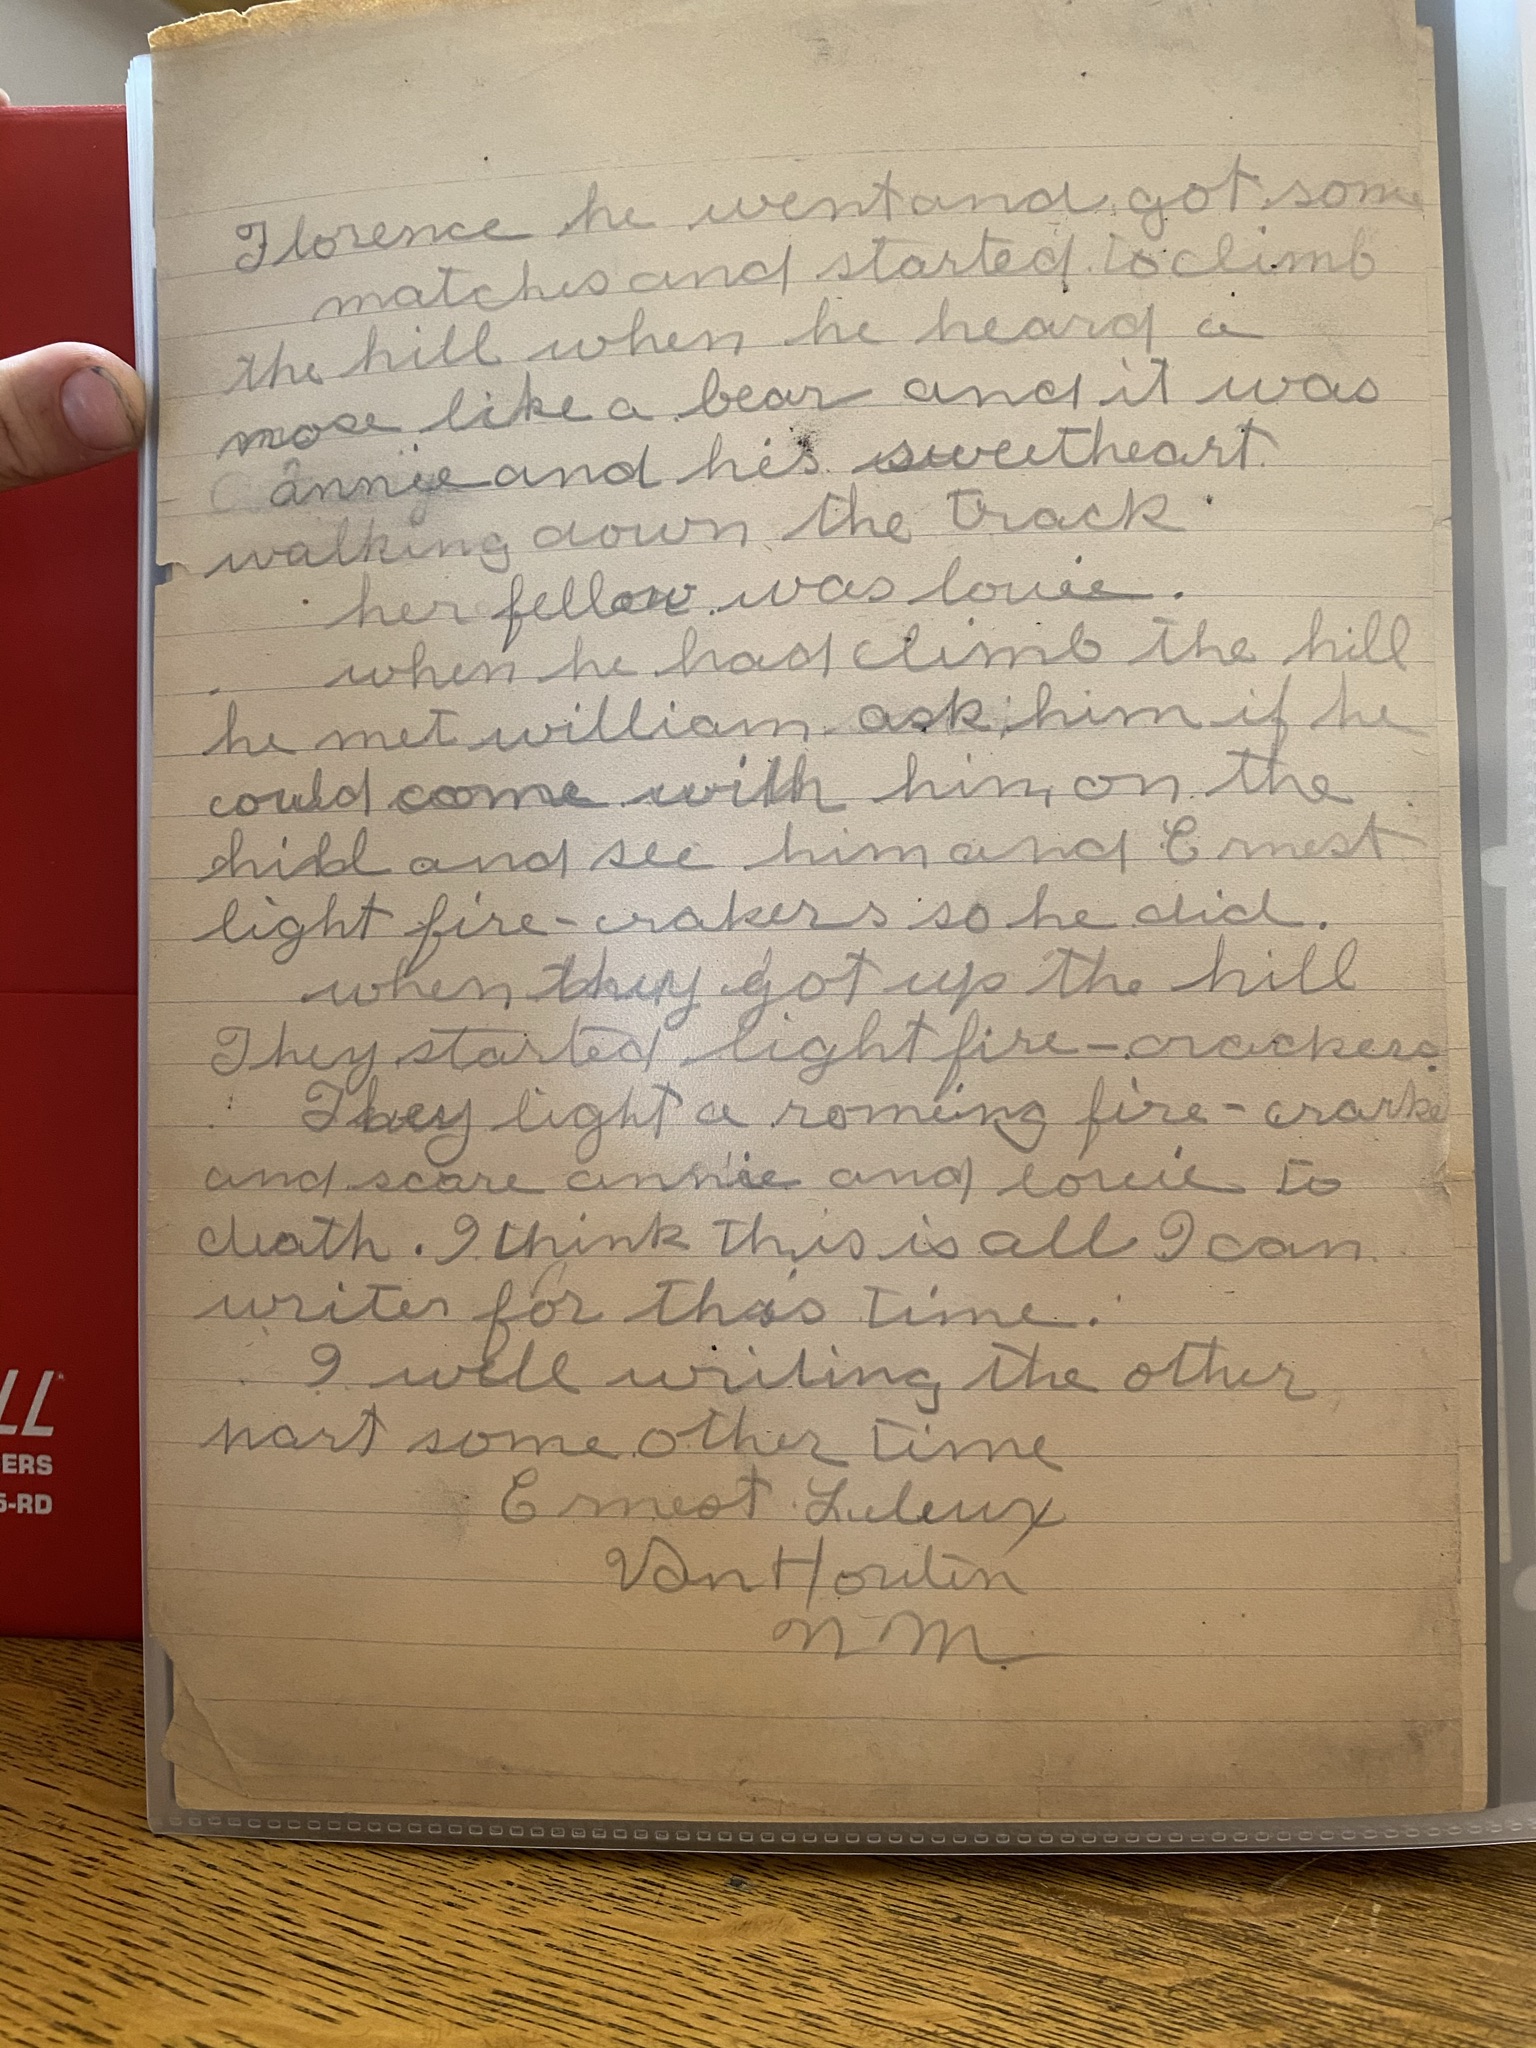 Florence he went and got some
matches and started to climb
the hill when he heard a
nose like a bear and it was
annie and his sweetheart
walking down the track
her fellow was louie.
when he had climb the hill
he met william ask him if he
could come with him on the
hill and see him and Ernest
light fire-crakers so he did.
when they got up the hill
They started light fire-crackers
They light a roming fire-crarke
and scare annie and louie to
death. I think this is all I can
writer for this time.
I will writing the other
part some other time
Ernest Luleux
Van Houtin
N M
LL
ERS
5-RD